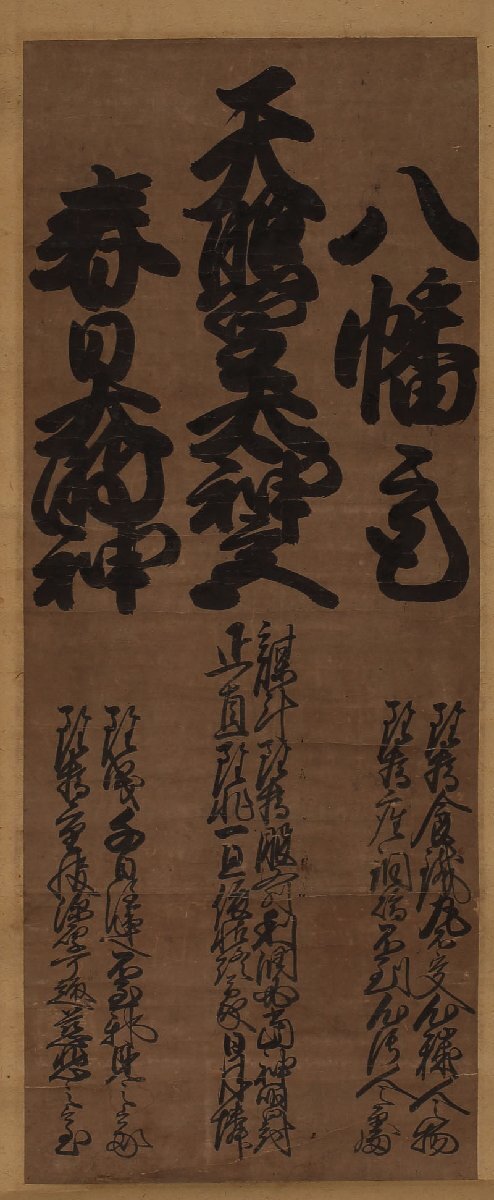 八幡
雖為食鐵丸不受心穢人之物
雖為座銅焔不到心濁人之處
天照皇大神
謀計雖為眼前利潤必當神明罰
正直雖非一旦依怙終蒙日月憐
春日大明神
雖曳千日注連不到邪見之家
雖為重服深厚可趣慈悲之室